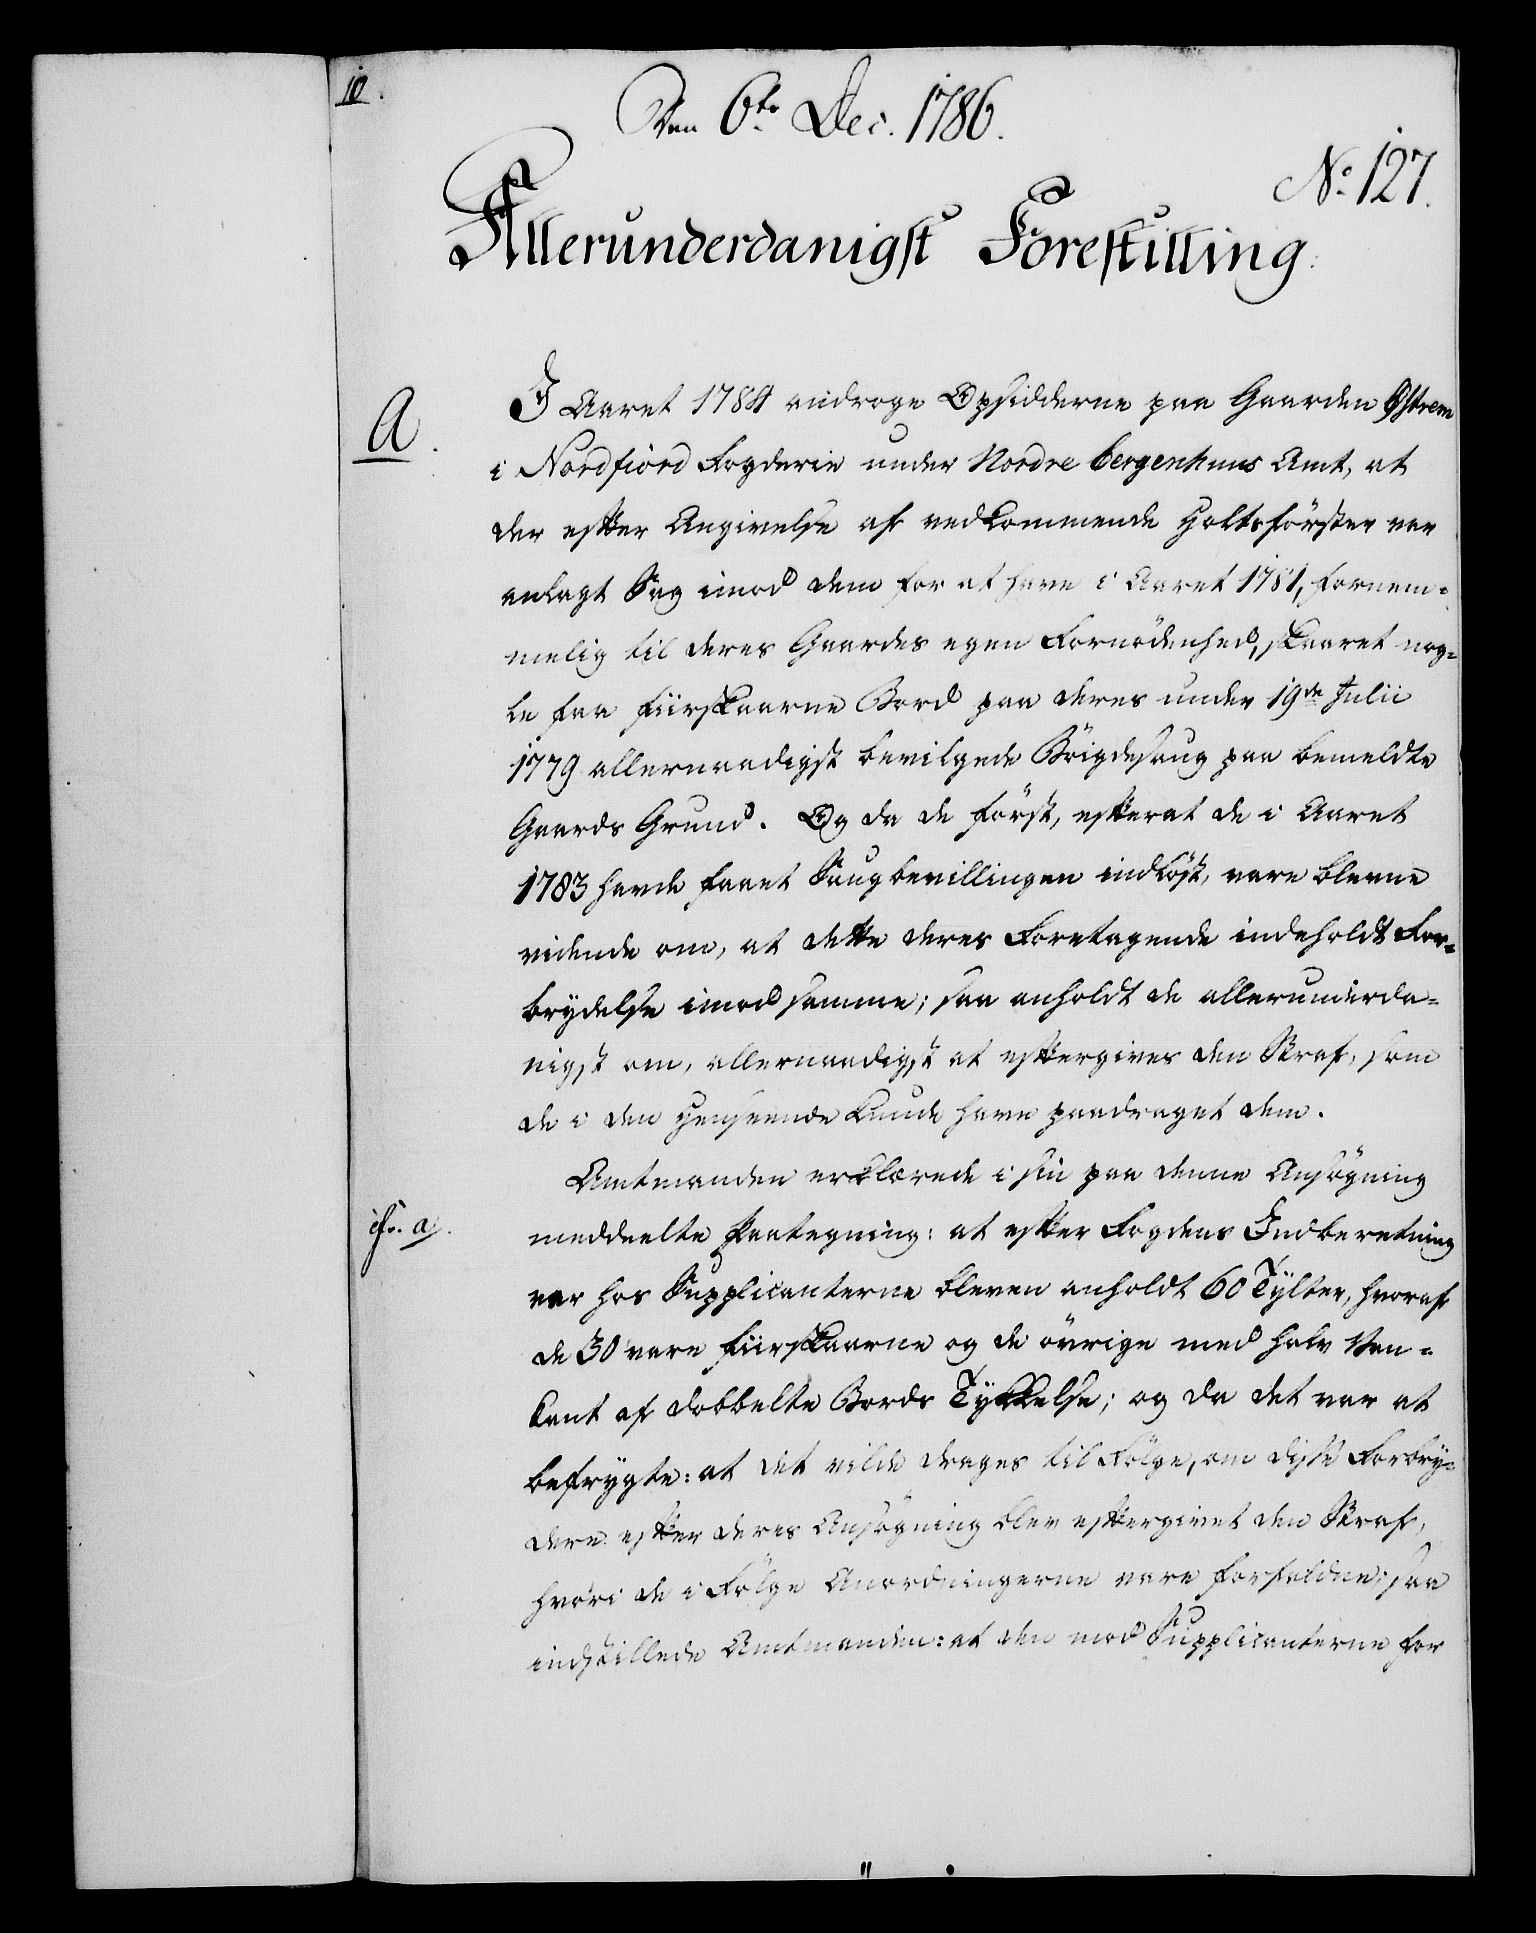 10.
Den 6te Dec. 1786.
No. 127.
Allerunderdanigst Forestilling.
A.
I Aaret 1784 androge Opsidderne paa Gaarden Østrem
i Nordfiord Fogderie under Nordre bergenhuus Amt, at
der efter Angivelse af vedkommende Holtsförster var
anlagt Sag imod dem for at have i Aaret 1781, fornem=
melig til deres Gaardes egen Fornödenhed, skaaret nog=
le faa fiirskaarne Bord paa deres under 19de Julii
1779 allernaadigst bevilgede Böigdesaug paa bemeldte
Gaards Grund. Og da de först, efterat de i Aaret
1783 havde faaet Saugbevillingen indlöst, vare blevne
vidende om, at dette deres Foretagende indeholdt For=
brydelse imod samme; saa anholdt de allerunderda=
nigst om, allernaadigst at eftergives den Straf, som
de i den Henseende kunde have paadraget dem.
Amtmanden erklærede i sin paa denne Ansögning
cfr. a.
meddeelte Paategning: at efter Fogdens Indberetning
var hos Supplicanterne bleven anholdt 60 Tylter, hvoraf
de 30 vare fiirskaarne og de övrige med halv Van=
kant af dobbelte Bords Tykkelse; og da det var at
befrygte: at det vilde drages til Fölge, om disse Forbry=
dere efter deres Ansögning blev eftergivet den Straf,
hvori de i Fölge Anordningerne vare forfaldne; saa
indstillede Amtmanden: at den mod Supplicanterne for